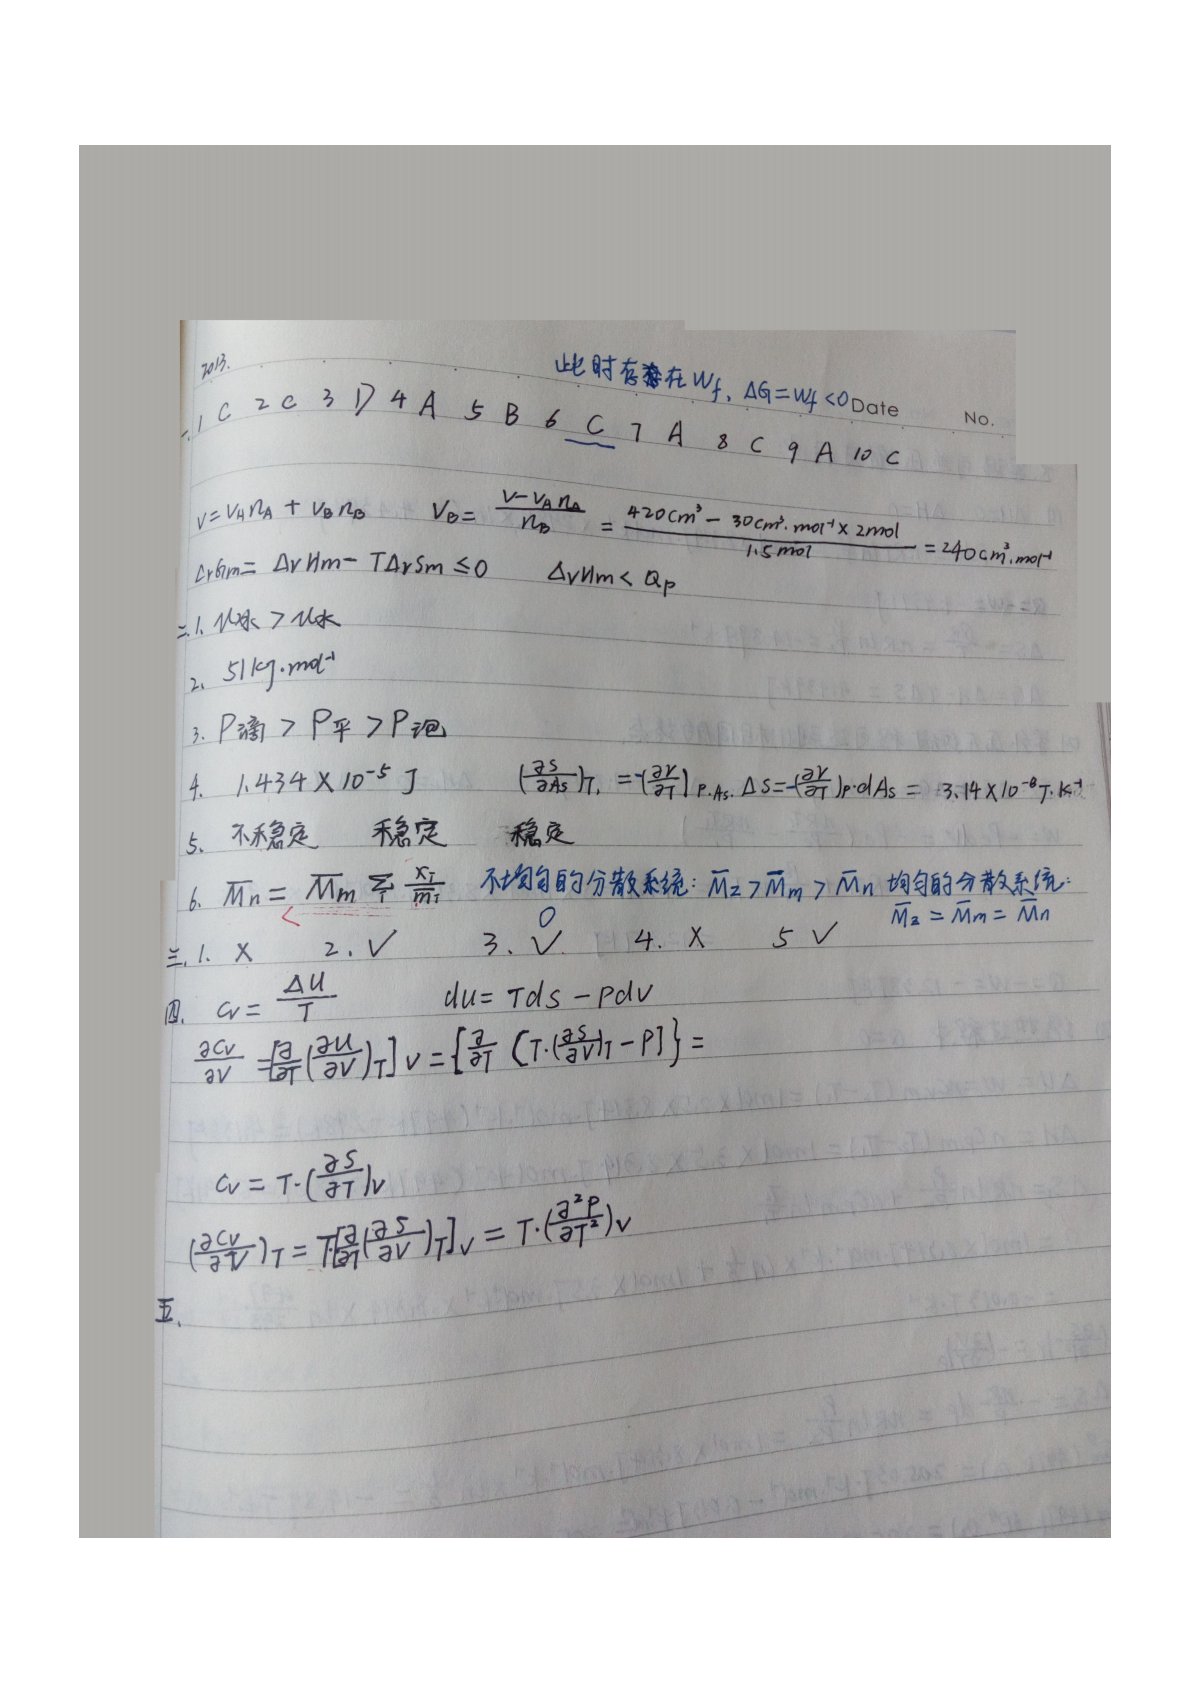 2013.
此时存在Wf, ΔG=Wf<0 Date No.
一. 1 C 2 C 3 D 4 A 5 B 6 C 7 A 8 C 9 A 10 C
V=VAnA + VBnB VB= (V-VAnA)/nB = (420cm³ - 30cm³·mol⁻¹×2mol)/1.5mol = 240cm³·mol⁻¹
ΔrGm= ΔrHm- TΔrSm ≤0 ΔrHm< Qp
二.1. μ冰 > μ水
2. 51kJ·mol⁻¹
3. P滴 > P平 > P泡
4. 1.434×10⁻⁵ J (∂S/∂As)T, =-(∂γ/∂T)P.As. ΔS=-(∂γ/∂T)P·dAs = 3.14×10⁻⁸J·K⁻¹
5. 不稳定 稳定 稳定
6. M̄n = M̄m Σ xi/m̄i 不均匀的分散系统: M̄z>M̄m>M̄n 均匀的分散系统:
< 0 M̄z = M̄m = M̄n
三.1. × 2. √ 3. √ 4. × 5 √
四. Cv= ΔU/T dU= TdS - PdV
∂Cv/∂V =[∂/∂T(∂U/∂V)T]V={∂/∂T [T·(∂S/∂V)T-P]}=
Cv = T·(∂S/∂T)V
(∂Cv/∂V)T = T·[∂/∂T(∂S/∂V)T]V = T·(∂²P/∂T²)V
五.